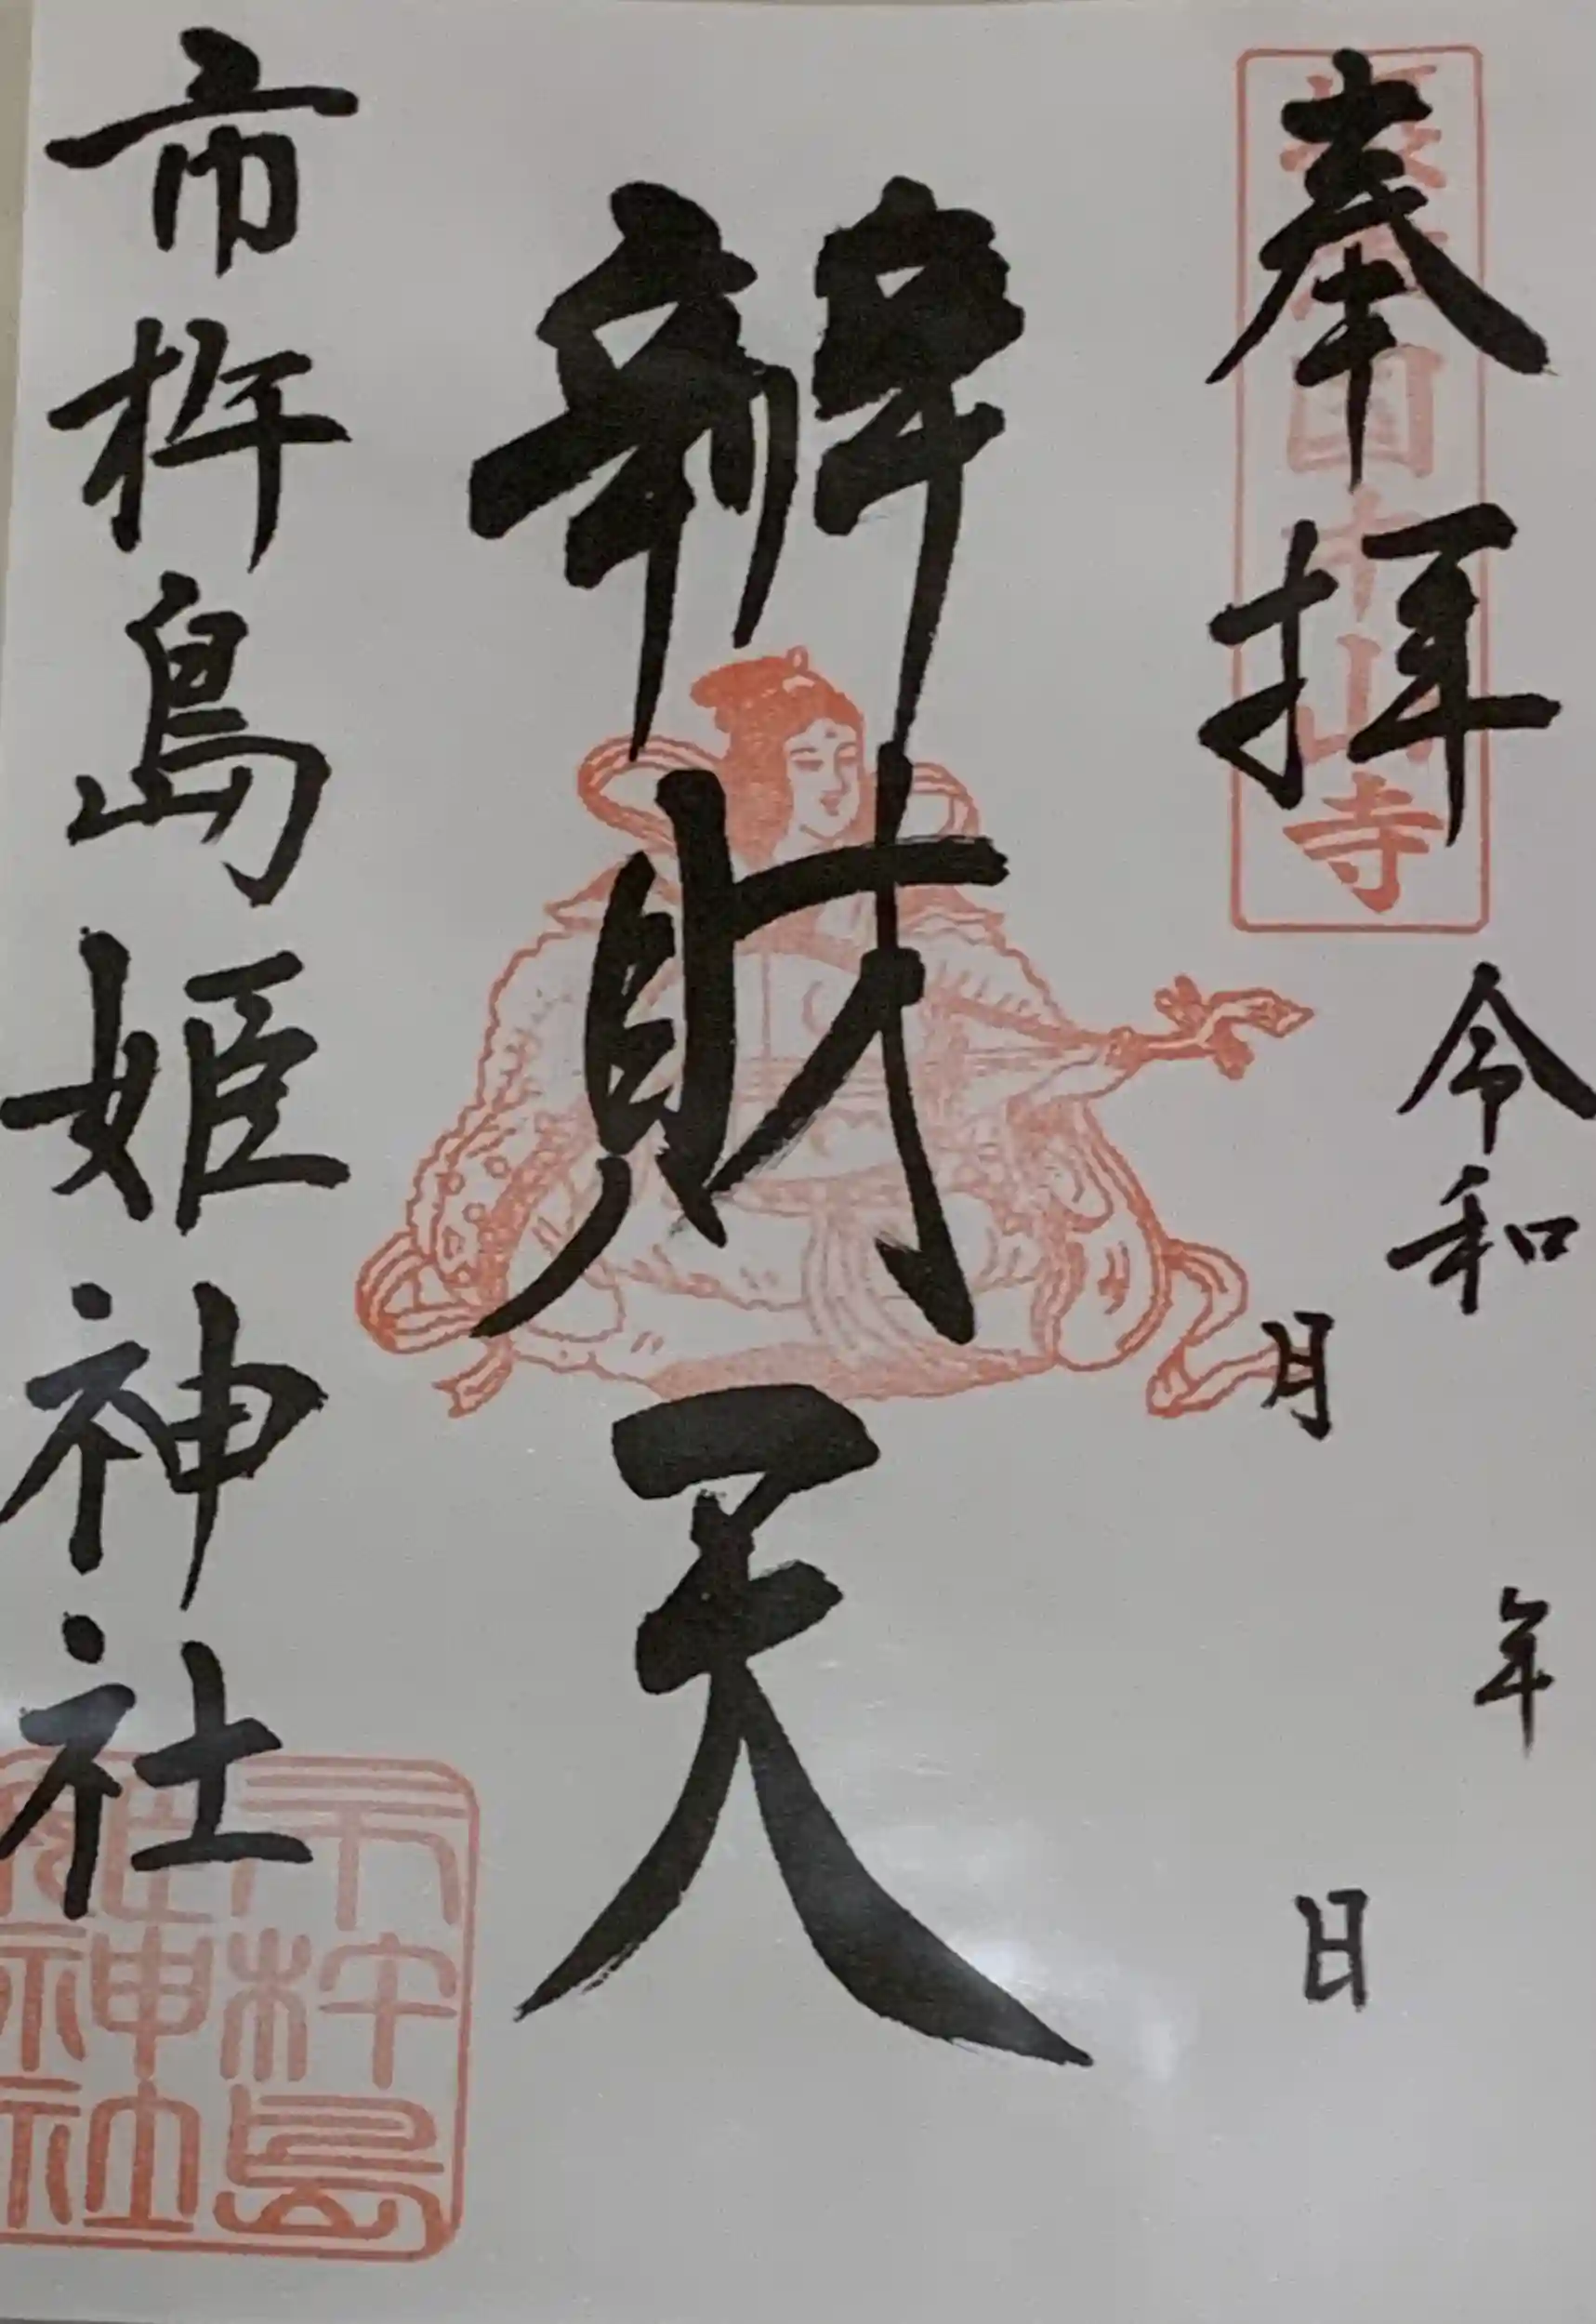 奉拝
令和 年
月 日
辨財天
市杵島姫神社
市杵島姫神社